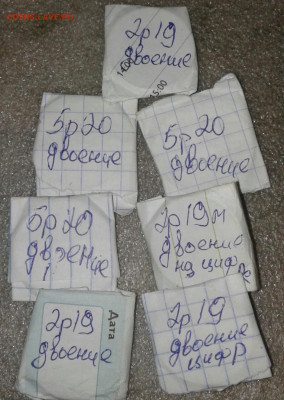 2р19
двоение
14.00
15.00
5р20
двоение
5р20
двоение
5р20
двоение
2р19м
двоение
на цифре
2р19
двоение
Дата
2р19
двоение
цифр